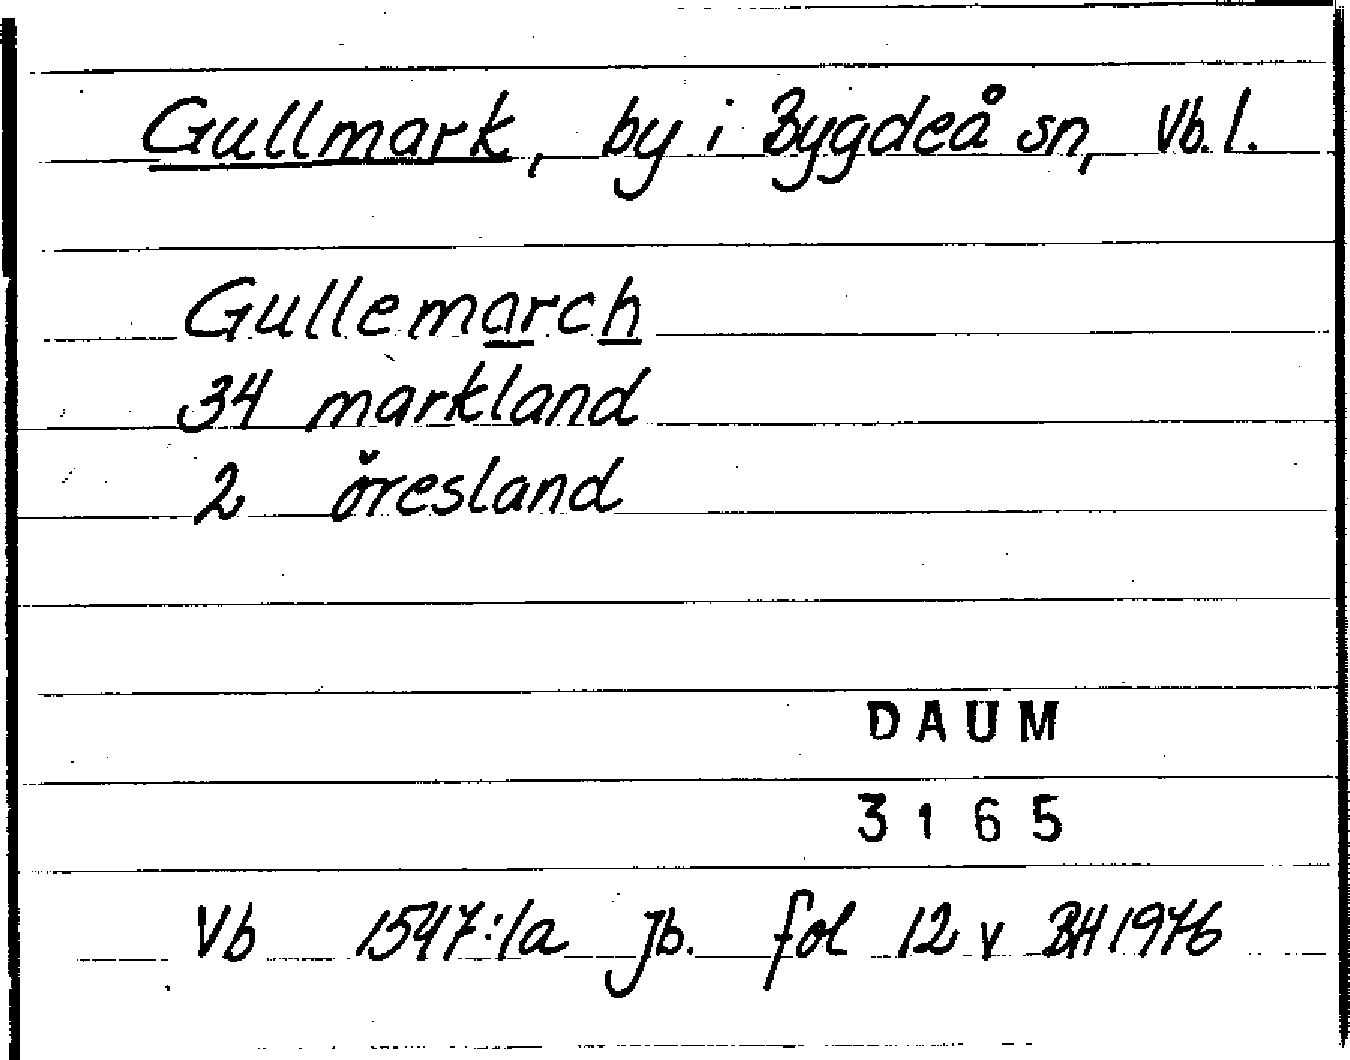 Gullmark, by i Bygdeå sn, Vb. l.
Gullemarch
34 markland
2 öresland
DAUM
3165
Vb 1547:1a Jb. fol 12 v BH 1976